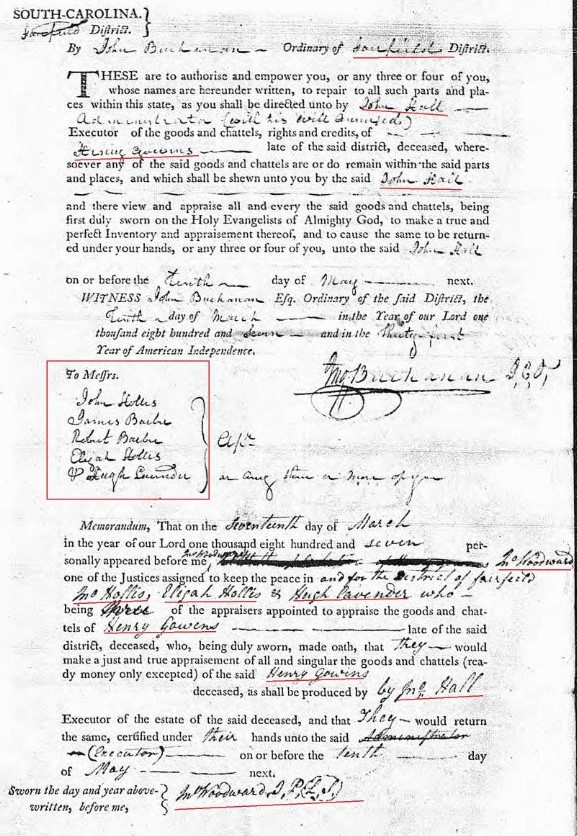 SOUTH-CAROLINA.}
Fairfield District.
By John Buchanan Ordinary of Fairfield District.
THESE are to authorise and empower you, or any three or four of you,
whose names are hereunder written, to repair to all such parts and pla-
ces within this state, as you shall be directed unto by John Hall
Administrator (with his Will annexed)
Executor of the goods and chattels, rights and credits, of
Henry Gowens late of the said district, deceased, where-
soever any of the said goods and chattels are or do remain within the said parts
and places, and which shall be shewn unto you by the said John Hall
and there view and appraise all and every the said goods and chattels, being
first duly sworn on the Holy Evangelists of Almighty God, to make a true and
perfect Inventory and appraisement thereof, and to cause the same to be return-
ed under your hands, or any three or four of you, unto the said John Hall
on or before the tenth day of May next.
WITNESS John Buchanan Esq. Ordinary of the said District, the
Tenth day of March in the Year of our Lord one
thousand eight hundred and seven and in the thirty first
Year of American Independence.
Jno Buchanan
To Messrs.
John Hollis
James Barber
Robert Barber
Elijah Hollis
& Hugh Cavender
or any three or more of you
Memorandum, That on the Seventeenth day of March
in the year of our Lord one thousand eight hundred and seven per-
sonally appeared before me Jno Woodward
one of the Justices assigned to keep the peace in and for the District of fairfeild
Jno Hollis, Elijah Hollis & Hugh Cavender who
being three of the appraisers appointed to appraise the goods and chat-
tels of Henry Gowens late of the said
district, deceased, who, being duly sworn, made oath, that they would
make a just and true appraisement of all and singular the goods and chattels (rea-
dy money only excepted) of the said Henry Gowins
deceased, as shall be produced by by Jno. Hall
Executor of the estate of the said deceased, and that They would return
the same, certified under their hands unto the said Administrator
(Executor) on or before the tenth day
of May next.
Sworn the day and year above- } Jno Woodward J.P. (L.S.)
written, before me,